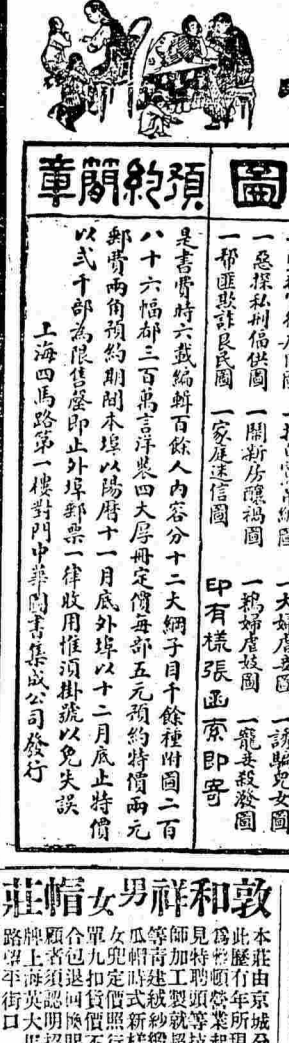 圖
一惡探私刑偪供圖　一鬧新房釀禍圖　一鴇婦虐妓圖　一寵妾殺潑圖
一帮匪欺詐良民圖　一家庭迷信圖
印有樣張函索即寄
預約簡章
是書費時六載編輯百餘人內容分十二大綱子目千餘種附圖二百
八十六幅都三百萬言洋裝四大厚冊定價每部五元預約特價兩元
郵費兩角預約期間本埠以陽曆十一月底外埠以十二月底止特價
以弍千部為限售罄即止外埠郵票一律收用惟須掛號以免失誤
上海四馬路第一樓對門中華圖書集成公司發行
敦和祥男女帽莊
本莊由京城分
此歷有年所現
為整頓營業起
見特聘頭等技
師加工製就超
等青建絨紗緞
瓜帽時式新樣
女兜定價照行
單九扣貨價不
合包退回換賜
顧者須認明招
牌上海英大馬
路望平街口